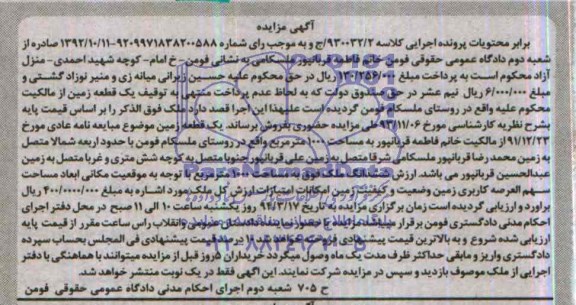 آگهی مزایده
برابر محتویات پرونده اجرایی کلاسه ۹۳۰۰۳۲/۲/ج و به موجب رای شماره ۹۲۰۹۹۷۱۸۳۸۲۰۰۵۸۸-۱۳۹۲/۱۰/۱۱ صادره از
شعبه دوم دادگاه عمومی حقوقی فومن خانم فاطمه قربانپور ملسکامی به نشانی فومن - خ امام - کوچه شهید احمدی - منزل
آزاد محکوم است به پرداخت مبلغ ۱۳۰/۲۵۶/۰۰۰ ریال در حق محکوم علیه حسین زیرابی میانه زی و منیر نوزاد گشتی و
مبلغ ۶/۰۰۰/۰۰۰ ریال نیم عشر در حق صندوق دولت که به لحاظ عدم پرداخت منتهی به توقیف یک قطعه زمین از مالکیت
محکوم علیه واقع در روستای ملسکام فومن گردیده است علیهذا این اجرا قصد دارد ملک فوق الذکر را بر اساس قیمت پایه
بشرح نظریه کارشناسی مورخ ۹۳/۱۱/۰۶ طی مزایده حضوری بفروش برساند. یک قطعه زمین موضوع مبایعه نامه عادی مورخ
۹۱/۱۲/۲۳ از مالکیت خانم فاطمه قربانپور به مساحت ۱۰۰۰ مترمربع واقع در روستای ملسکام فومن با حدود اربعه شمالا متصل
به زمین محمدرضا قربانپور ملسکامی شرقا متصل به زمین علی قربانپور جنوبا متصل به کوچه شش متری و غربا متصل به زمین
عبدالحسین قربانپور می باشد. ارزش ملک فوق به مساحت ۱۰۰۰ مترمربع با توجه به موقعیت مکانی ابعاد مساحت
سهم العرصه کاربری زمین وضعیت و کیفیت زمین امکانات امتیازات ارزش کل ملک مورد اشاره به مبلغ ۴۰۰/۰۰۰/۰۰۰ ریال
برآورد و ارزیابی گردیده است زمان برگزاری مزایده به تاریخ ۹۴/۳/۱۷ روز یکشنبه از ساعت ۱۰ الی ۱۱ صبح در محل دفتر اجرای
احکام مدنی دادگستری فومن برقرار میباشد. مزایده با حضور نماینده دادستان عمومی و انقلاب راس ساعت مقرر از قیمت پایه
ارزیابی شده شروع و به بالاترین قیمت پیشنهادی فروخته قیمت پیشنهادی فی المجلس بحساب سپرده
دادگستری واریز و مابقی حداکثر ظرف مدت یک ماه وصول میگردد خریداران ۵ روز قبل از مزایده میتوانند با هماهنگی با دفتر
اجرایی از ملک موصوف بازدید و سپس در مزایده شرکت نمایند. این آگهی فقط در یک نوبت منتشر خواهد شد.
ح ۷۰۵ شعبه دوم اجرای احکام مدنی دادگاه عمومی حقوقی فومن